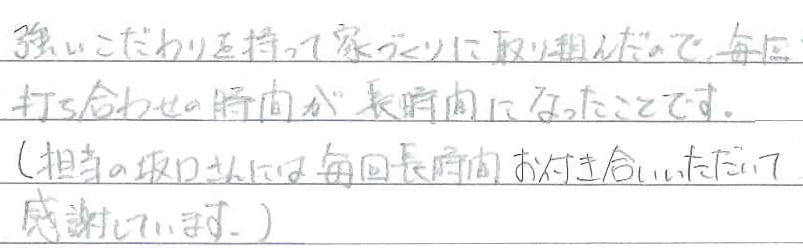 強いこだわりを持って家づくりに取り組んだので、毎回
打ち合わせの時間が長時間になったことです。
(担当の坂口さんには毎回長時間お付き合いいただいて
感謝しています。)